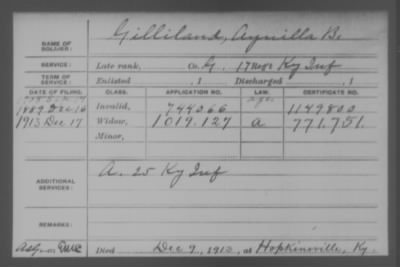 Gilliland, Aquilla B.
NAME OF SOLDIER:
SERVICE: Late rank, Co. G. 17 Regt Ky Inf
TERM OF SERVICE: Enlisted , 1 Discharged , 1
DATE OF FILING. CLASS. APPLICATION NO. LAW. CERTIFICATE NO.
1889 Dec 16 Invalid, 744066 1149800
1913 Dec 17 Widow, 1019.127 a. 771,751.
Minor,
ADDITIONAL SERVICES: A. 25 Ky Inf
REMARKS:
Died Dec 9, 1913, at Hopkinsville, Ky.